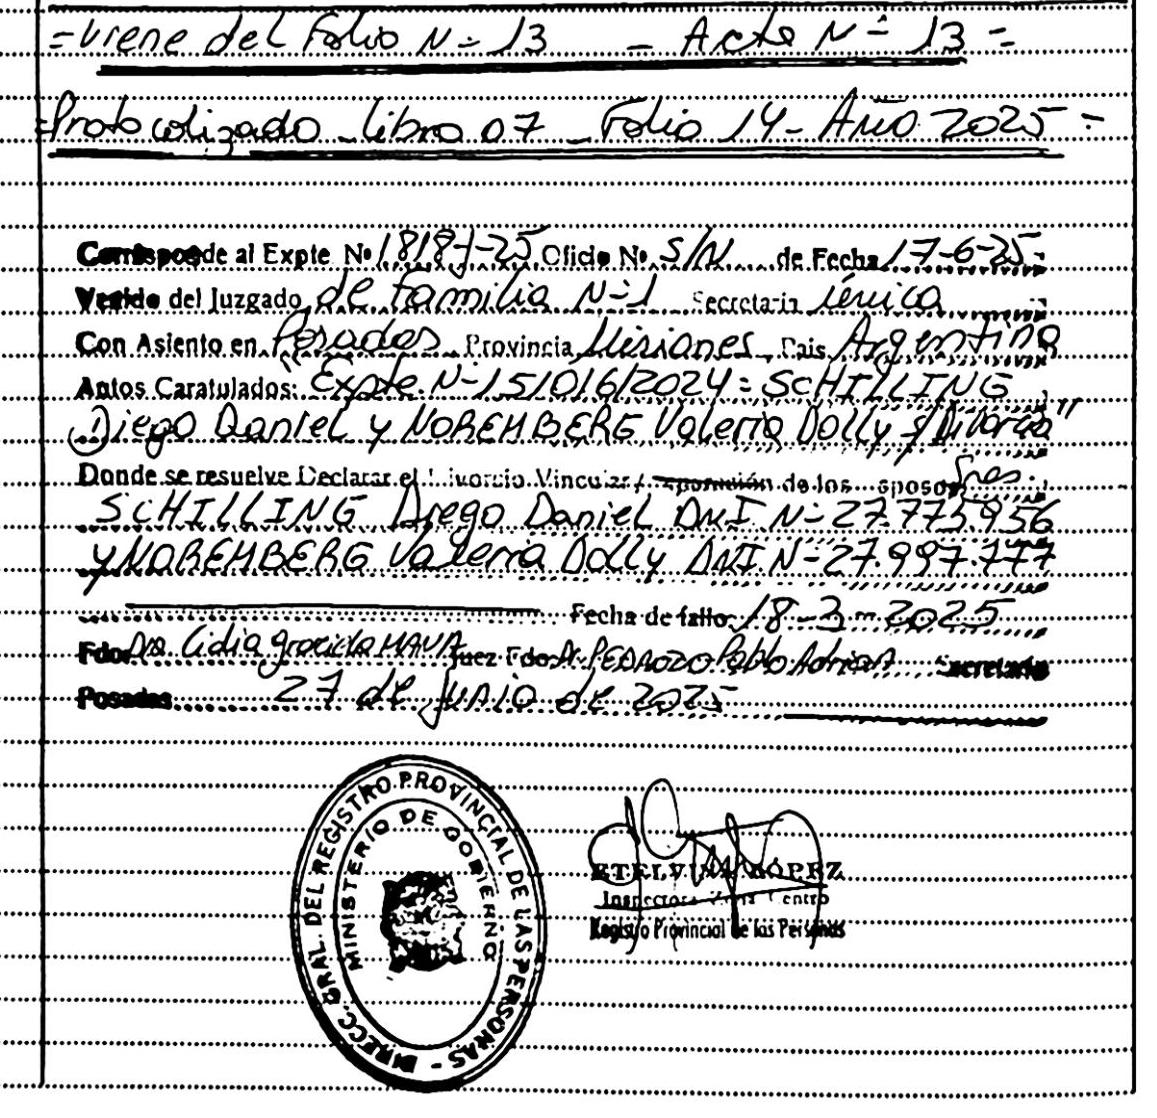 =Viene del Folio Nº 13 - Acta Nº 13=
=Protocolizado - Libro 07 - Folio 14 - Año 2025=
Corresponde al Expte Nº 1818-J-25 Oficio Nº S/N de Fecha 17-6-25-
Venido del Juzgado de Familia Nº 1 Secretaria única
Con Asiento en Posadas Provincia Misiones Pais Argentina
Autos Caratulados: "Expte. Nº 151016/2024= SCHILLING
Diego Daniel y NOREMBERG Valeria Dolly s/Divorcio"
Donde se resuelve Declarar el Divorcio Vincular / separación de los esposos Sres.
SCHILLING Diego Daniel DNI. Nº 27.775.956
y NOREMBERG Valeria Dolly DNI. Nº 27.997.777
Fecha de fallo 18-3-2025
Fdo: Dra. Lidia Graciela MAYA Juez Fdo: Dr. PEDROZO Pablo Adrian Secretario
Posadas 27 de Junio de 2025
DIRECC. GRAL. DEL REGISTRO PROVINCIAL DE LAS PERSONAS -
MINISTERIO DE GOBIERNO
ETELVINA LÓPEZ
Inspectora Zona Centro
Registro Provincial de las Personas